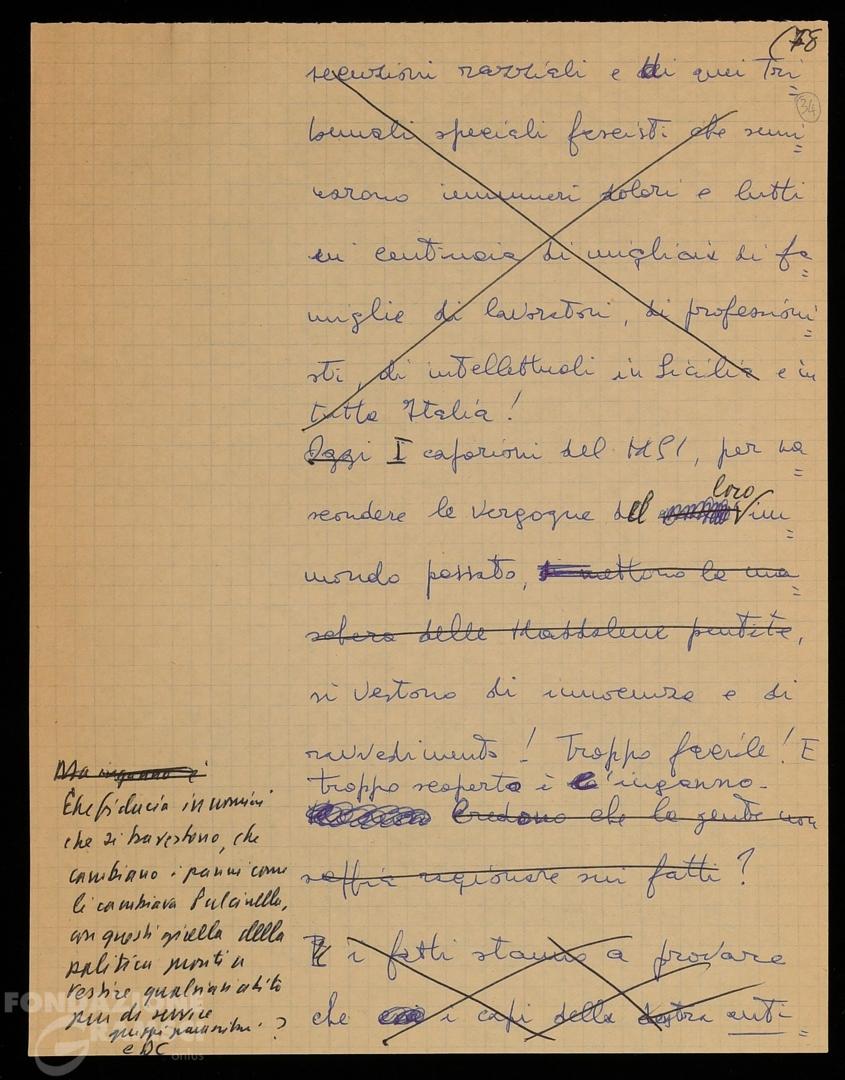 78
34
secuzioni razziali e di quei Tri=
bunali speciali fascisti che semi=
narono innumeri dolori e lutti
in centinaia di migliaia di fa=
miglie di lavoratori, di professioni=
sti, di intellettuali in Sicilia e in
tutta Italia!
Oggi I caporioni del MSI, per na=
scondere le vergogne del loro im=
mondo passato, si mettono la ma=
schera delle Maddalene pentite,
si vestono di innocenza e di
ravvedimento! Troppo facile! E
troppo scoperto è l'inganno.
Credono che la gente non
sappia ragionare sui fatti?
E i fatti stanno a provare
che i capi della destra anti-
Ma inganno è
Che fiducia in uomini
che si travestono, che
cambiano i panni come
li cambiava Pulcinella,
con questi della
politica pronti a
vestire qualsiasi abito
pur di servire
gruppi ?
e DC
FONDAZIONE
GRAMSCI
onlus